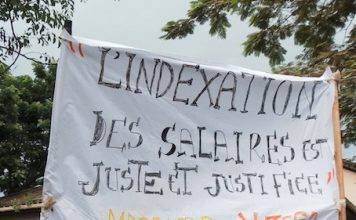 "L'INDEXATION
DES SALAIRES EST
JUSTE ET JUSTIFIÉE"